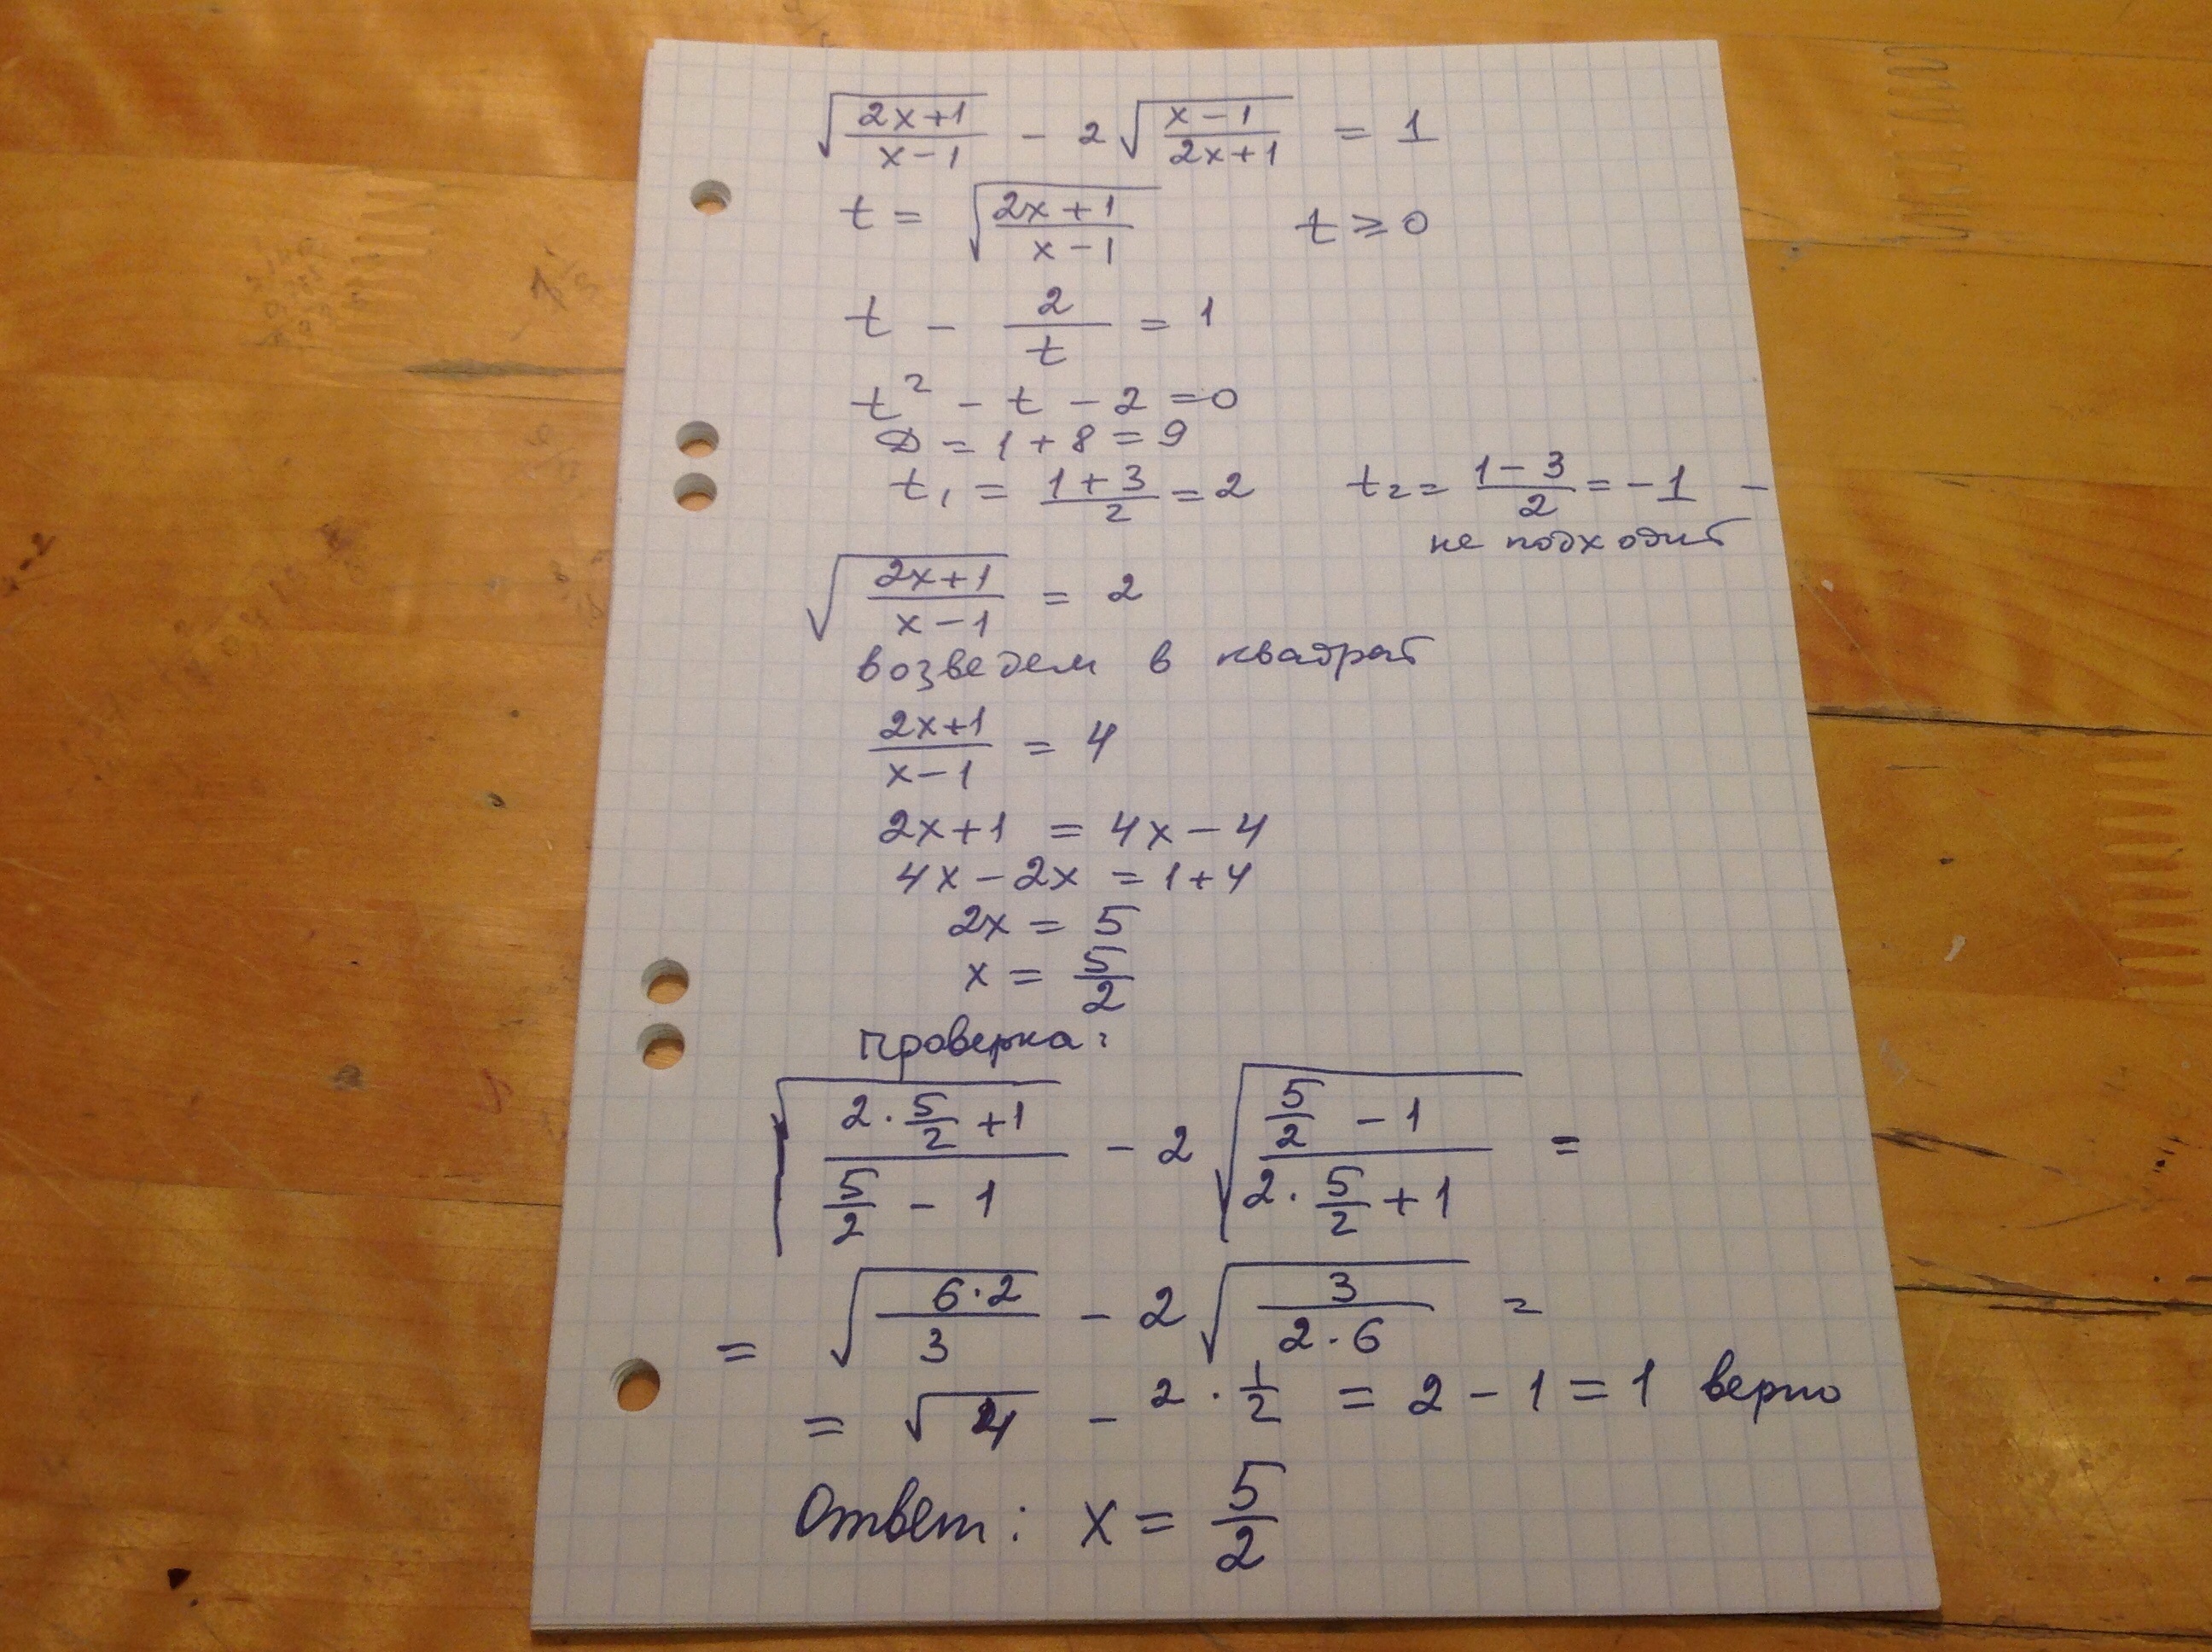 √((2x+1)/(x-1)) - 2√((x-1)/(2x+1)) = 1
t = √((2x+1)/(x-1)) t ≥ 0
t - 2/t = 1
t² - t - 2 = 0
D = 1 + 8 = 9
t₁ = (1+3)/2 = 2 t₂ = (1-3)/2 = -1 -
не подходит
√((2x+1)/(x-1)) = 2
возведем в квадрат
(2x+1)/(x-1) = 4
2x+1 = 4x-4
4x-2x = 1+4
2x = 5
x = 5/2
проверка:
√((2·5/2+1)/(5/2-1)) - 2√((5/2-1)/(2·5/2+1)) =
= √(6·2/3) - 2√(3/(2·6)) =
= √4 - 2·1/2 = 2-1 = 1 верно
Ответ: x = 5/2